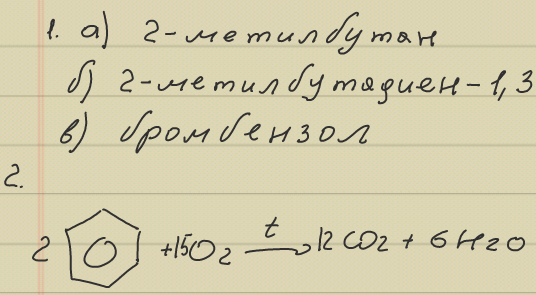 1. а) 2-метилбутан
б) 2-метилбутадиен-1,3
в) бромбензол
2.
2 +15O2 t 12CO2 + 6H2O